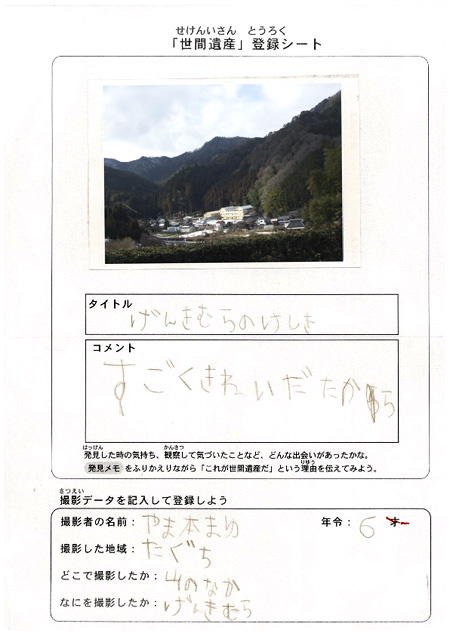 せけんいさん とうろく
「世間遺産」登録シート
タイトル
げんきむらのけしき
コメント
すごくきれいだたから
はっけん かんさつ
発見した時の気持ち、観察して気づいたことなど、どんな出会いがあったかな。
りゆう
発見メモ をふりかえりながら「これが世間遺産だ」という理由を伝えてみよう。
さつえい
撮影データを記入して登録しよう
撮影者の名前：やま本まゆ 年令：6才
撮影した地域：たぐち
どこで撮影したか：山のなか
なにを撮影したか：げんきむら